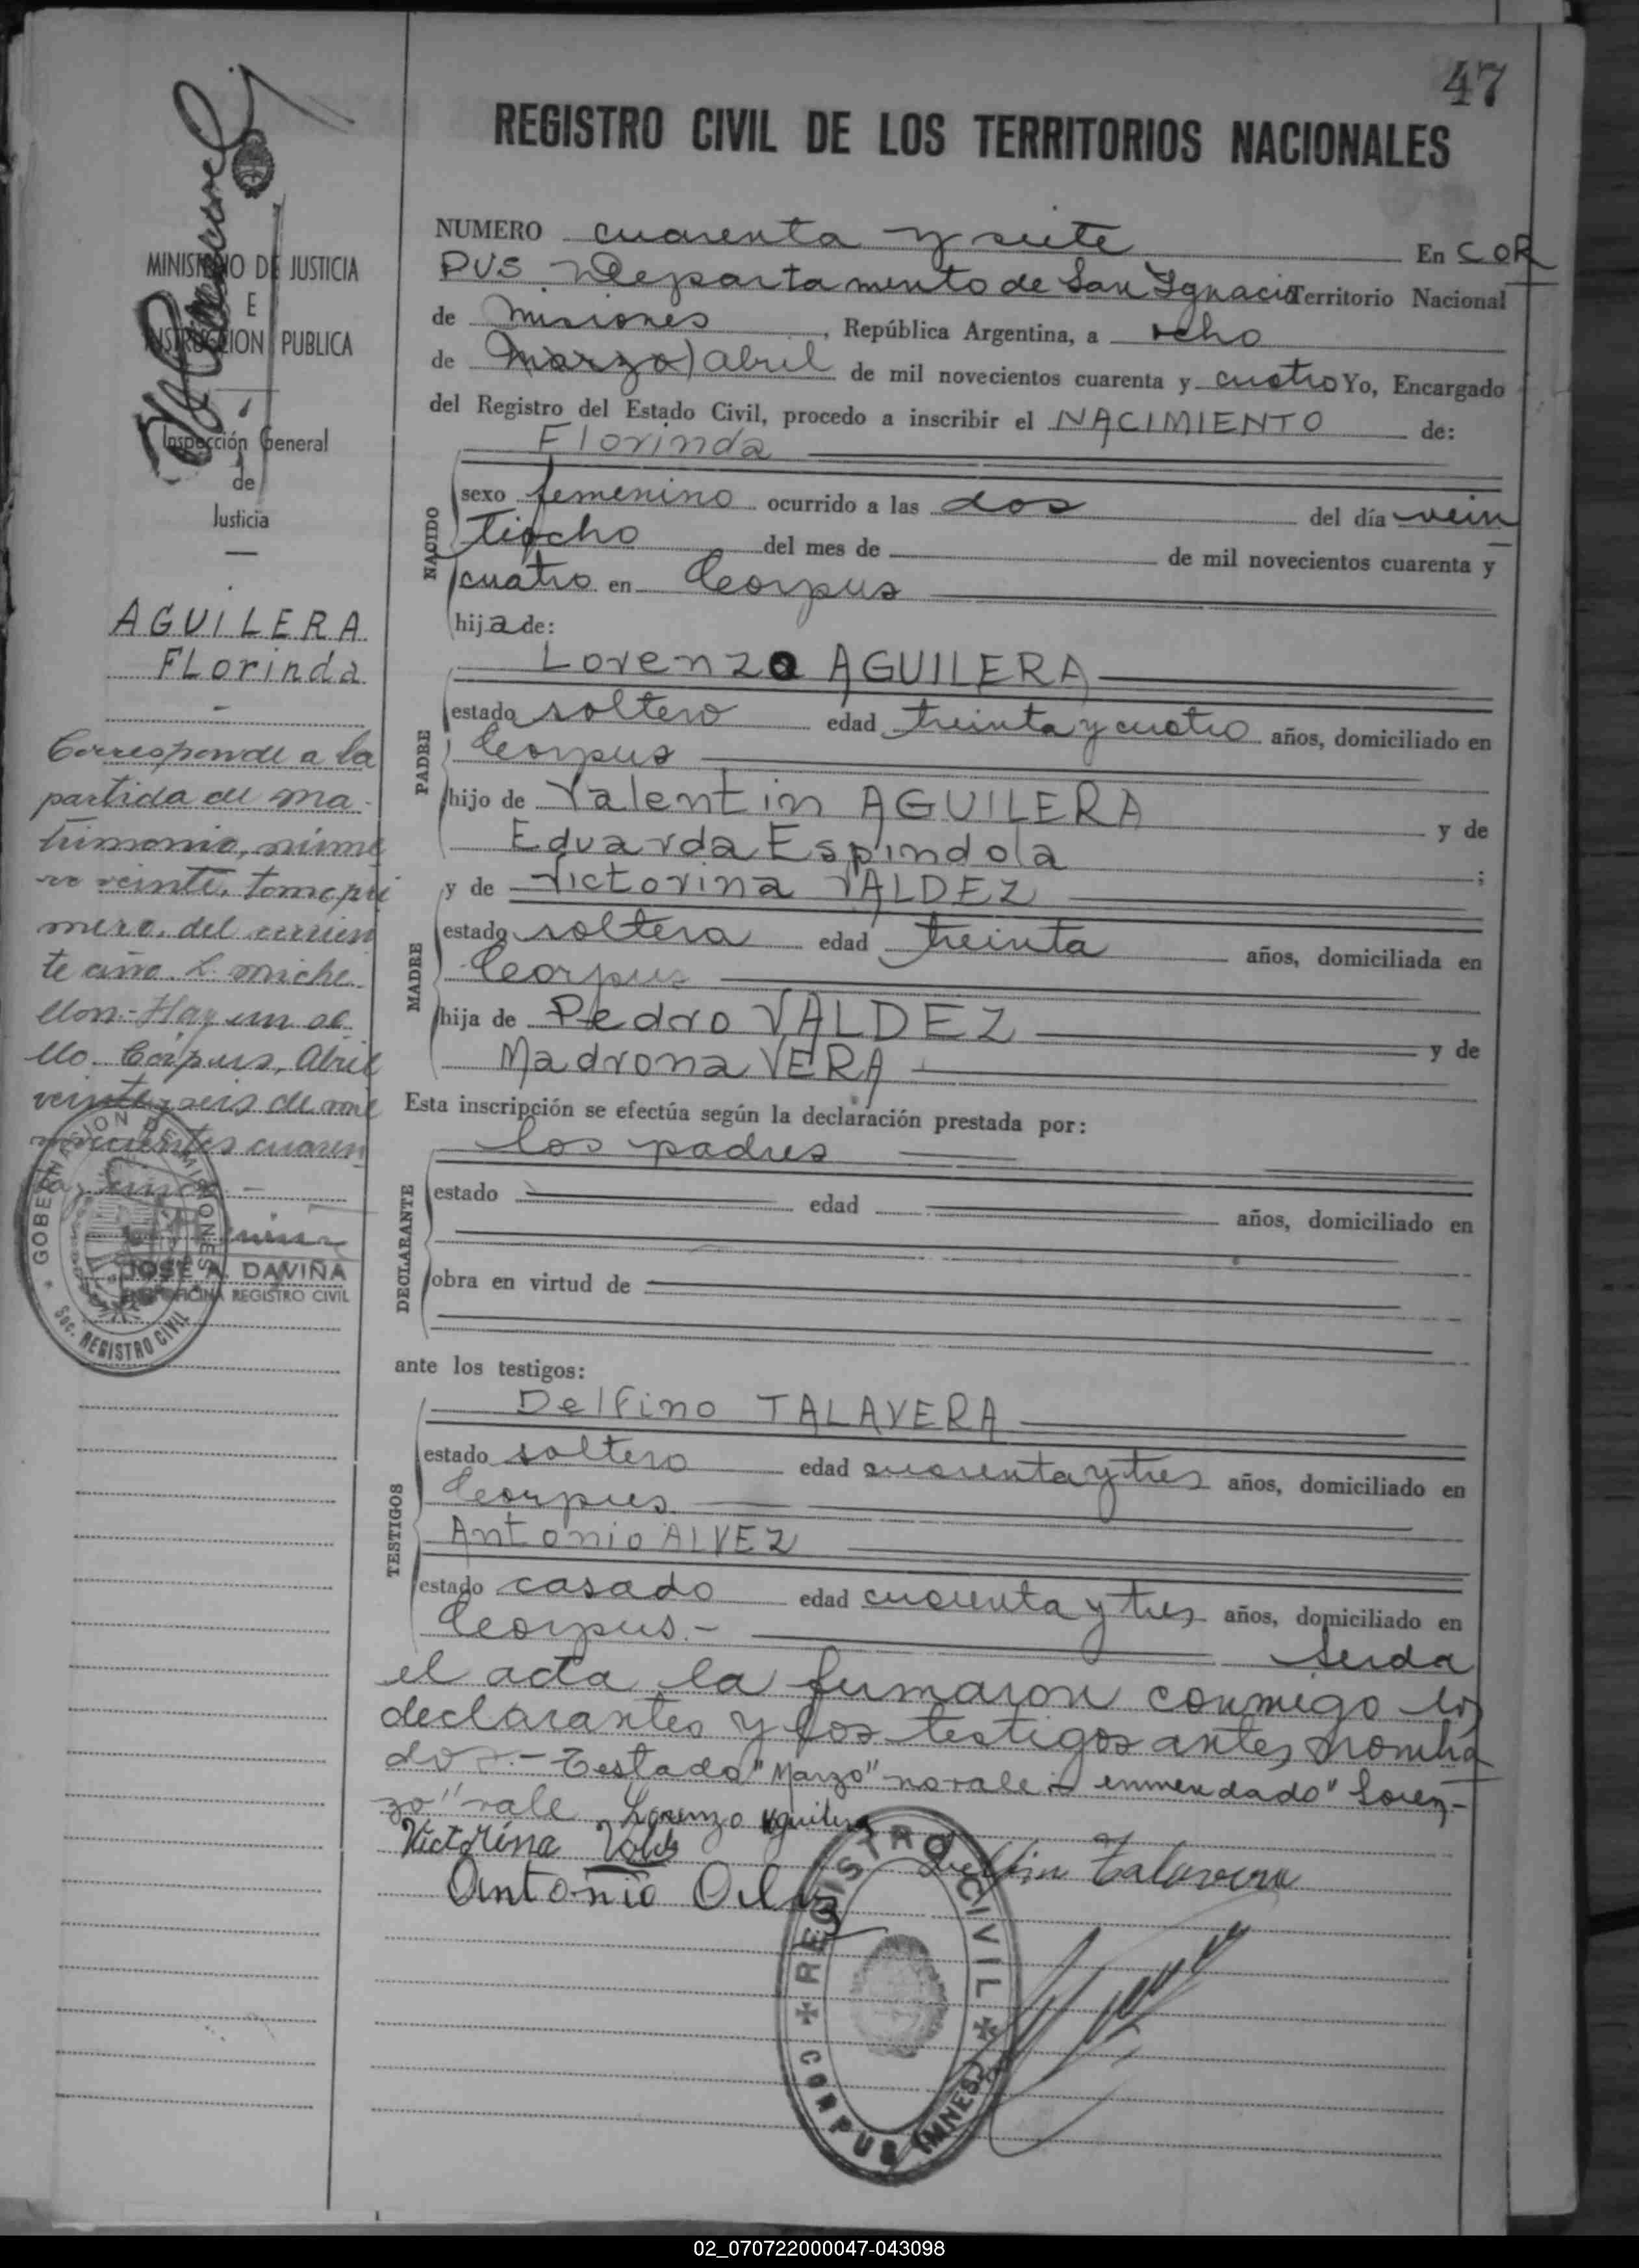 47
REGISTRO CIVIL DE LOS TERRITORIOS NACIONALES
MINISTERIO DE JUSTICIA
E
INSTRUCCION PUBLICA
Inspección General
de
Justicia
AGUILERA
FLorinda
Corresponde a la
partida de ma-
trimonio, núme
ro veinte, tomo pri
mero, del corrien
te año. L. Miche
llon.- Hay un se
llo. Corpus, Abril
veinte y seis de mil
novecientos cuaren
GOBERNACION DE MISIONES
SEC. REGISTRO CIVIL
JOSE A. DAVIÑA
OFICINA REGISTRO CIVIL
NUMERO cuarenta y siete En COR
PUS Departamento de San Ignacio Territorio Nacional
de Misiones, República Argentina, a ocho
de Marzo) abril de mil novecientos cuarenta y cuatro Yo, Encargado
del Registro del Estado Civil, procedo a inscribir el NACIMIENTO de:
Florinda
NACIDO
sexo femenino ocurrido a las dos del día vein
tiocho del mes de de mil novecientos cuarenta y
cuatro en Corpus
hija de:
Lorenzo AGUILERA
PADRE
estado soltero edad treinta y cuatro años, domiciliado en
Corpus
hijo de Valentin AGUILERA y de
Eduarda Espindola ;
y de Victorina VALDEZ
MADRE
estado soltera edad treinta años, domiciliada en
Corpus
hija de Pedro VALDEZ y de
Madrona VERA
Esta inscripción se efectúa según la declaración prestada por:
los padres
DECLARANTE
estado edad años, domiciliado en
obra en virtud de
ante los testigos:
Delfino TALAVERA
TESTIGOS
estado soltero edad cuarenta y tres años, domiciliado en
Corpus
Antonio ALVEZ
estado casado edad cuarenta y tres años, domiciliado en
Corpus.- Leida
el acta la firmaron conmigo los
declarantes y los testigos antes nombra
dos.- Testado "Marzo" no vale - enmendado "Loren-
zo" vale Lorenzo Aguilera
Victorina Valdz
Delfin Talavera
Antonio
REGISTRO CIVIL
CORPUS (MNES)
02_070722000047-043098